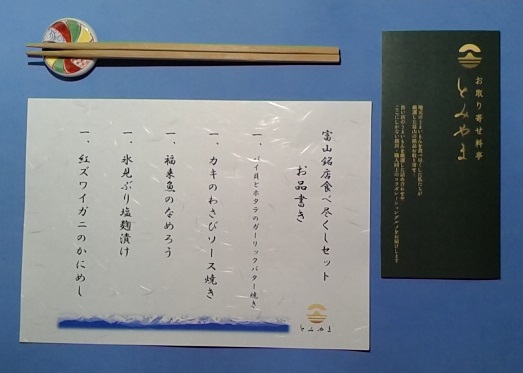 富山銘店食べ尽くしセット
お品書き
一、バイ貝とホタテのガーリックバター焼き
一、カキのわさびソース焼き
一、福来魚のなめろう
一、氷見ぶり塩麹漬け
一、紅ズワイガニのかにめし
とみやま
お取り寄せ料亭
とみやま